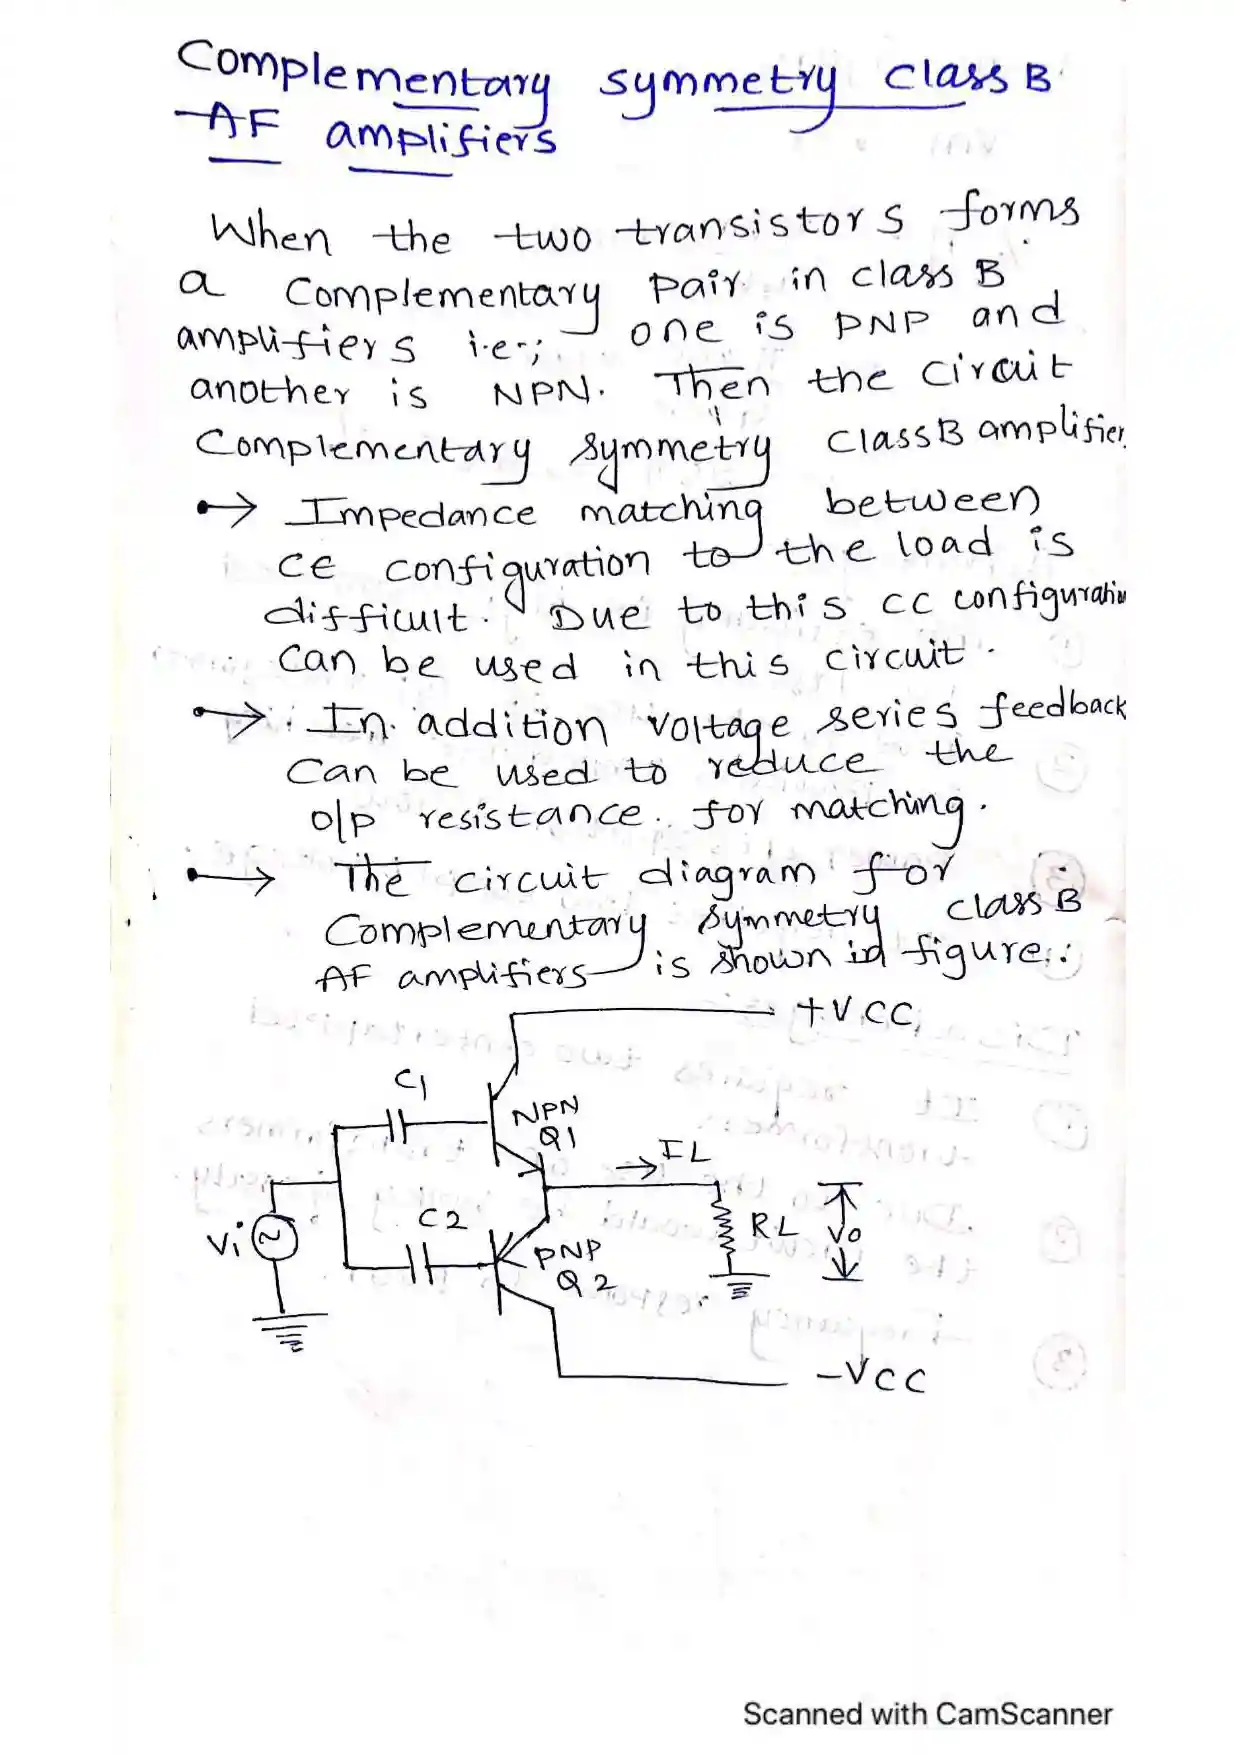 Complementary symmetry class B
AF amplifiers
When the two transistors forms
a Complementary pair in class B
amplifiers i.e.; one is PNP and
another is NPN. Then the circuit
Complementary symmetry class B amplifier
Impedance matching between
CE configuration to the load is
difficult. Due to this CC configuration
can be used in this circuit.
In addition voltage series feedback
Can be used to reduce the
o/p resistance for matching.
The circuit diagram for
Complementary symmetry class B
AF amplifiers is shown in figure:
+VCC
C1
NPN
Q1
IL
C2
RL
Vo
Vi
PNP
Q2
-VCC
Scanned with CamScanner